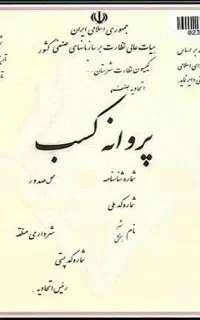 جمهوری اسلامی ایران
هیات عالی نظارت بر سازمانهای صنفی کشور
کمیسیون نظارت شهرستان
اتحادیه صنف
پروانه کسب
شماره شناسنامه محل صدور
شماره کد ملی
نام شهر شهرداری منطقه
شماره کد پستی
رئیس اتحادیه
823
بر اساس